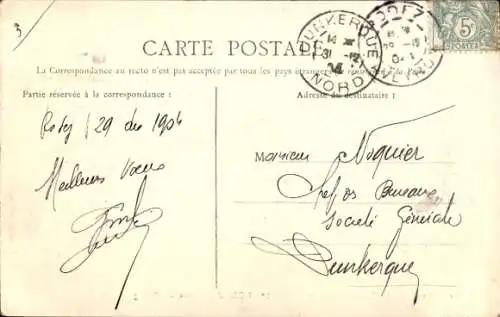 3
CARTE POSTALE
La Correspondance au recto n'est pas acceptée par tous les pays étrangers
Partie réservée à la correspondance :
Adresse du destinataire :
DUNKERQUE
14
31 -12
NORD
5c
POSTES
Rodez 29 dec 1904
Meilleurs Voeux
Monsieur Noquier
Chef des Bureaux
Société Générale
Dunkerque